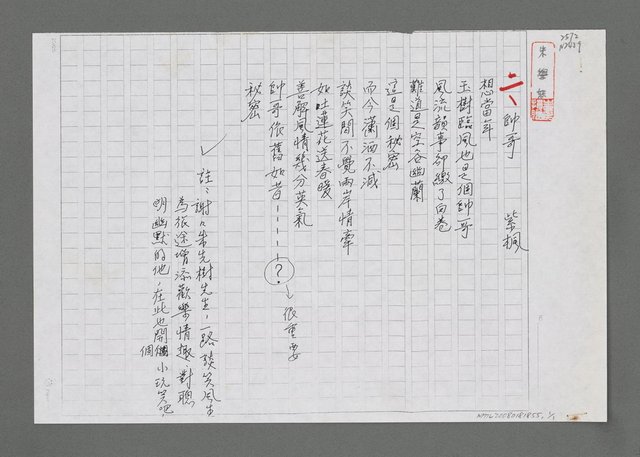 二、帥哥 紫楓
想當年
玉樹臨風也是個帥哥
風流韻事卻繳了白卷
難道是空谷幽蘭
這是個秘密
而今瀟洒不減
談笑間不覺兩岸情牽
如吐蓮花送春暖
善解風情幾分英氣
帥哥依舊如昔-----?
很重要
秘密
註:謝々朱先樹先生,一路談笑風生
為旅途增添歡樂情趣,對聰
明幽默的他,在此也開個小玩笑吧,
個
朱學恕